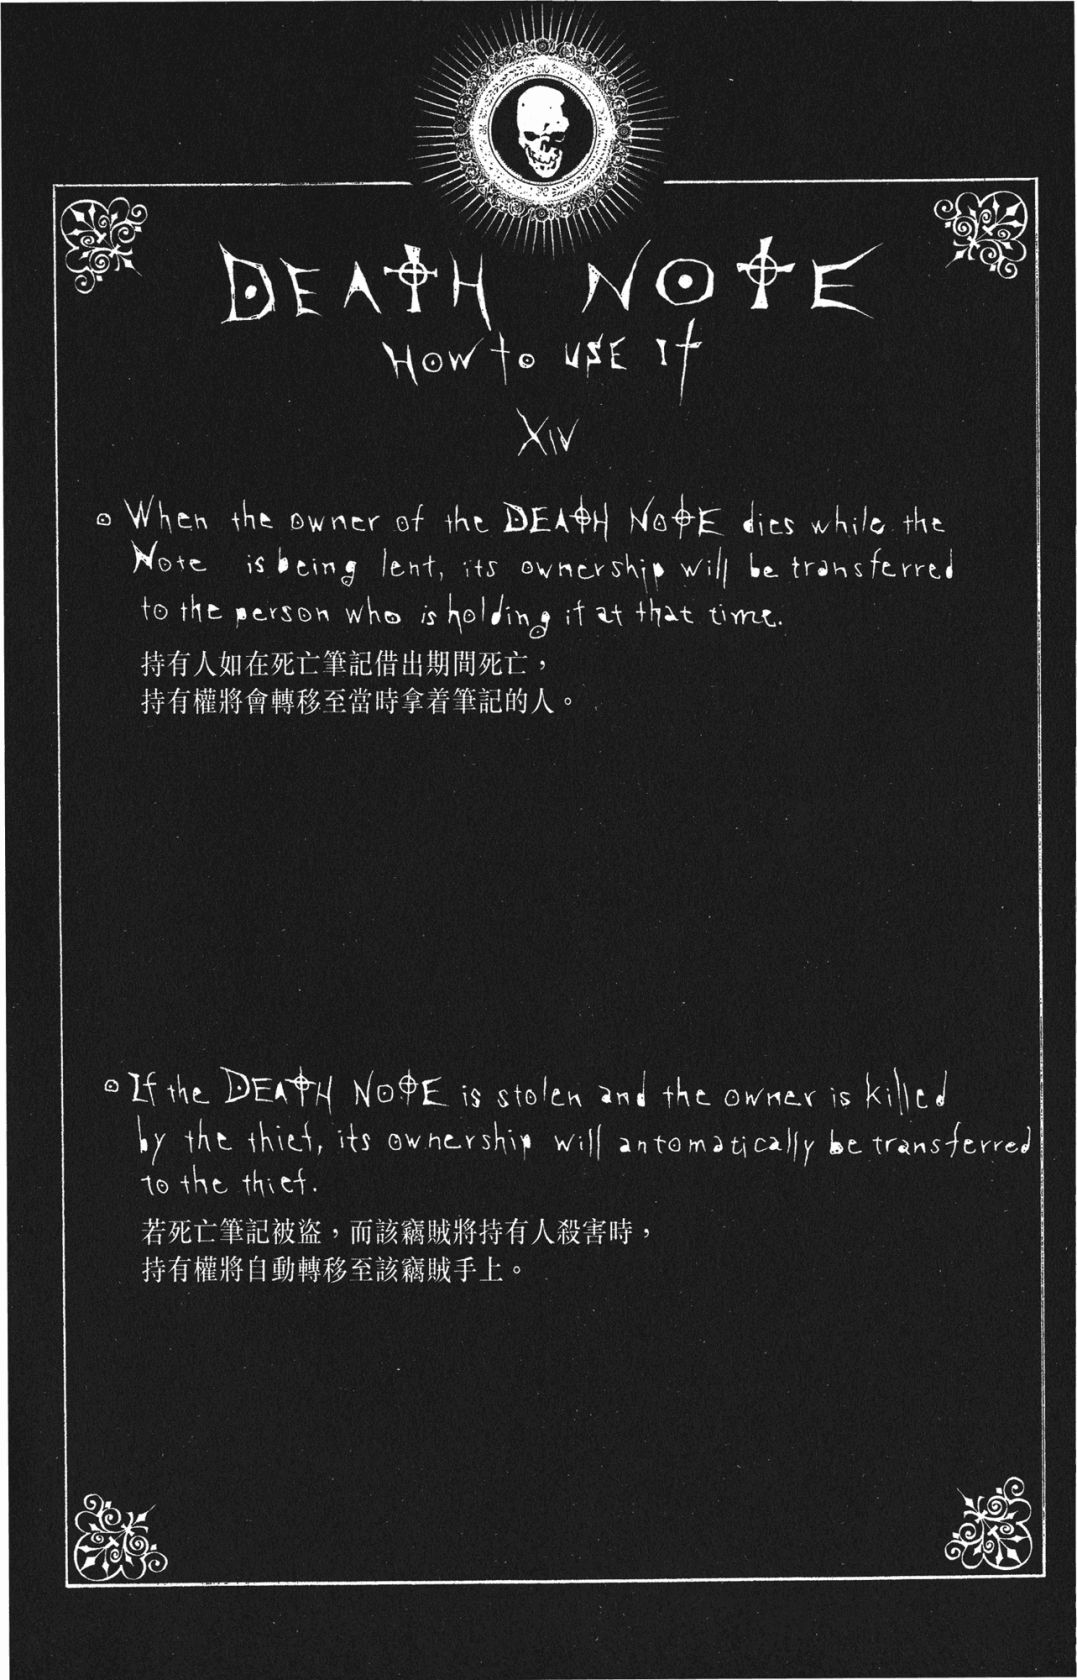 DEATH NOTE
HOW to USE It
XIV
When the owner of the DEATH NOTE dies while the
Note is being lent, its ownership will be transferred
to the person who is holding it at that time.
持有人如在死亡筆記借出期間死亡，
持有權將會轉移至當時拿着筆記的人。
If the DEATH NOTE is stolen and the owner is killed
by the thief, its ownership will automatically be transferred
to the thief.
若死亡筆記被盜，而該竊賊將持有人殺害時，
持有權將自動轉移至該竊賊手上。